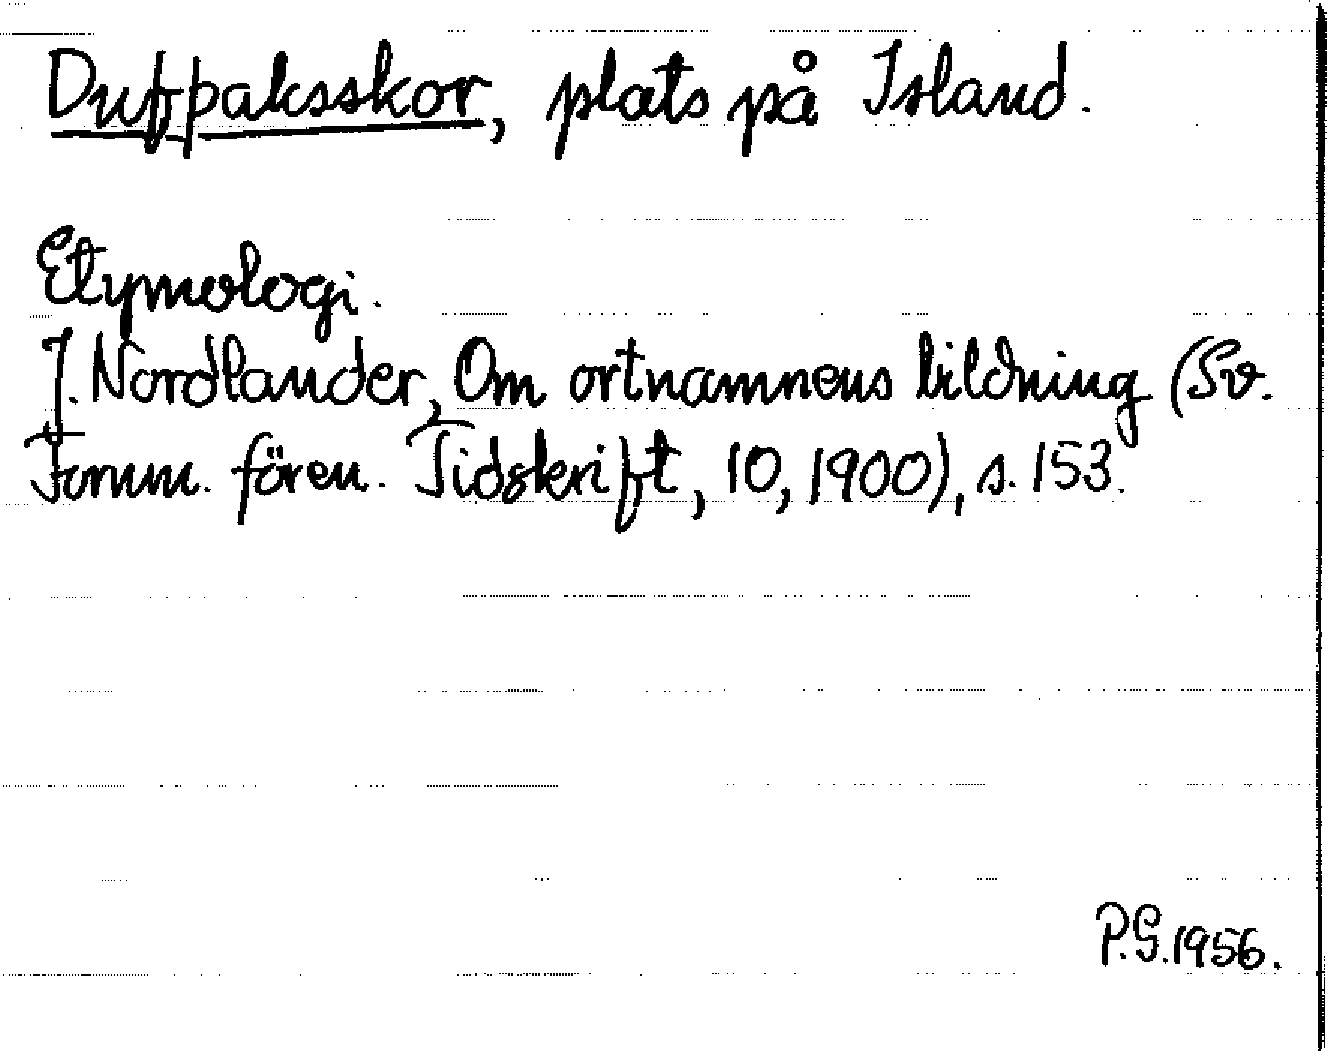 Dufþaksskor, plats på Island.
Etymologi.
J. Nordlander, Om ortnamnens bildning (Sv.
Fornm. fören. Tidskrift, 10, 1900), s. 153.
P.G. 1956.